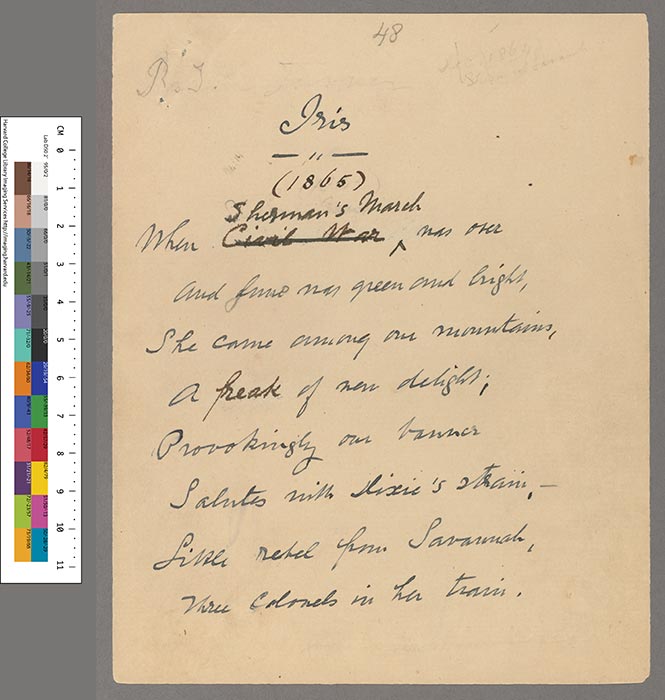 48
Iris
— " —
(1865)
Sherman's March
When Civil War ‸ was over
And June was green and bright,
She came among our mountains,
A freak of new delight;
Provokingly our banner
Salutes with Dixie's strain,—
Little rebel from Savannah,
Three Colonels in her train.
CM 0 1 2 3 4 5 6 7 8 9 10 11
Harvard College Library Imaging Services http://imaging.harvard.edu